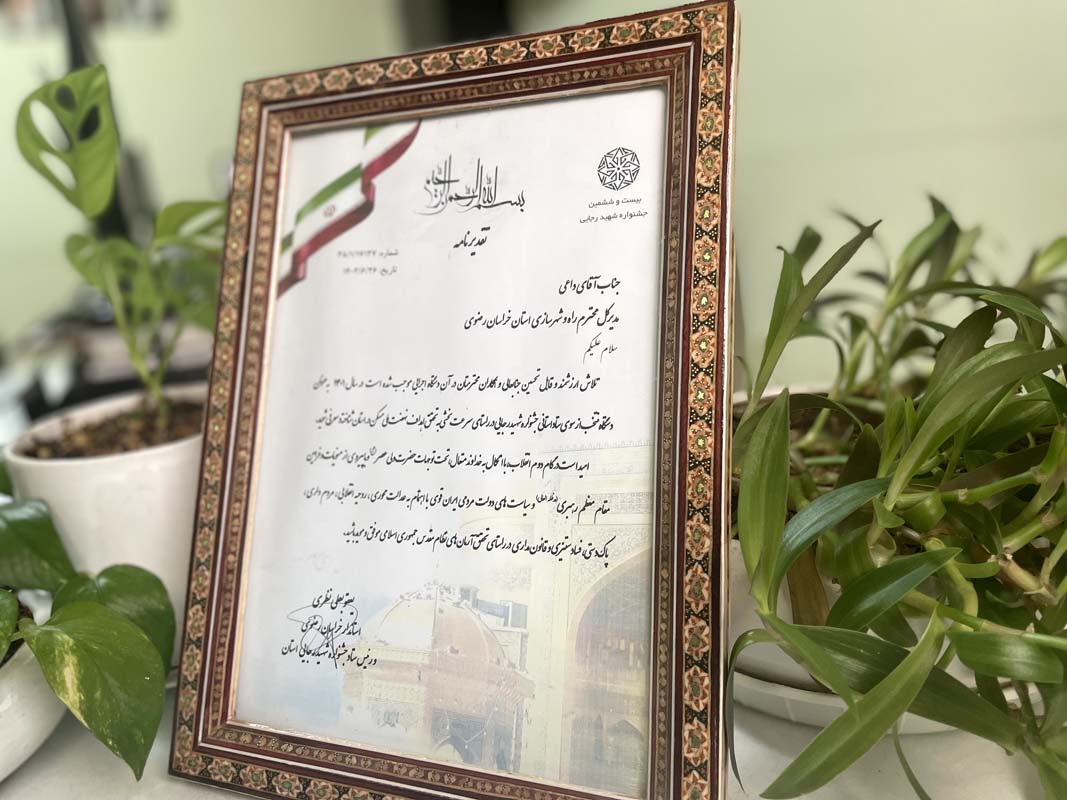 بسم الله الرحمن الرحیم
بیست و ششمین
جشنواره شهید رجایی
تقدیرنامه
شماره:
تاریخ: ۱۴۰۲/۶/۲۶
جناب آقای داعی
مدیرکل محترم راه و شهرسازی استان خراسان رضوی
سلام علیکم
تلاش ارزشمند و قابل تحسین جنابعالی و همکاران محترمتان در آن دستگاه اجرایی موجب شده است در سال ۱۴۰۱ به عنوان
دستگاه منتخب از سوی ستاد استانی جشنواره شهید رجایی در راستای سرعت بخشی تحقق اهداف نهضت ملی مسکن در استان شناخته و معرفی شوید.
امید است در گام دوم انقلاب، با اتکال به خداوند متعال، تحت توجهات حضرت ولی عصر و با پیروی از منویات و فرامین
مقام معظم رهبری و سیاست های دولت مردمی ایران قوی با اهتمام به عدالت محوری، روحیه انقلابی، مردم داری،
پاکدستی، فساد ستیزی و قانون مداری در راستای تحقق آرمان های نظام مقدس جمهوری اسلامی موفق و موید باشید.
یعقوبعلی نظری
استاندار خراسان رضوی
و رئیس ستاد جشنواره شهید رجایی استان